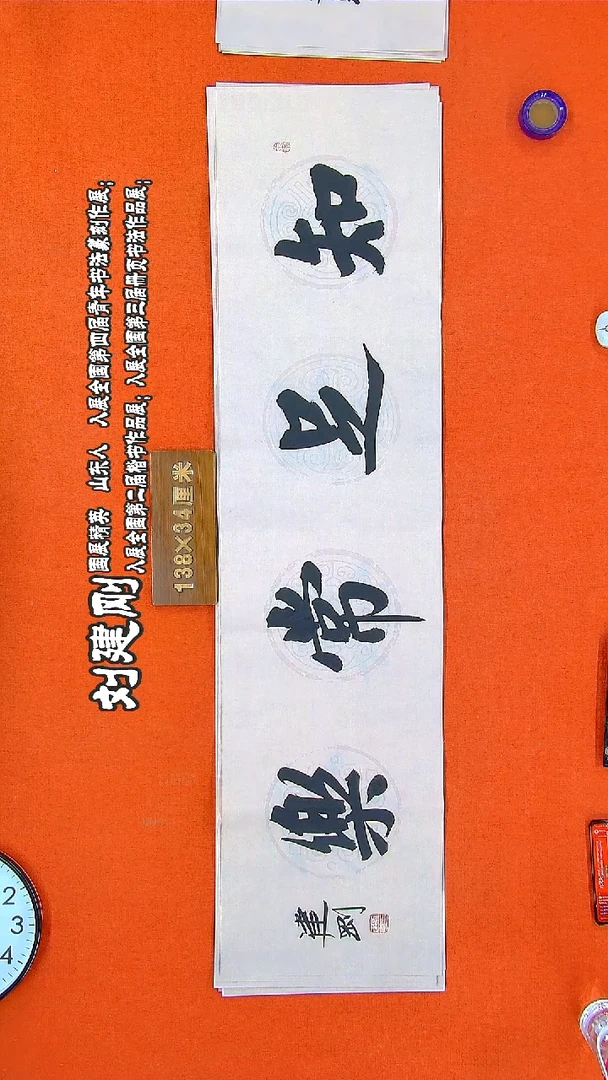 刘建刚
国展精英 山东人 入展全国第四届青年书法篆刻作展;
入展全国第二届楷书作品展; 入展全国第三届册页书法作品展;
138×34厘米
知足常樂
建剛
2
3
4